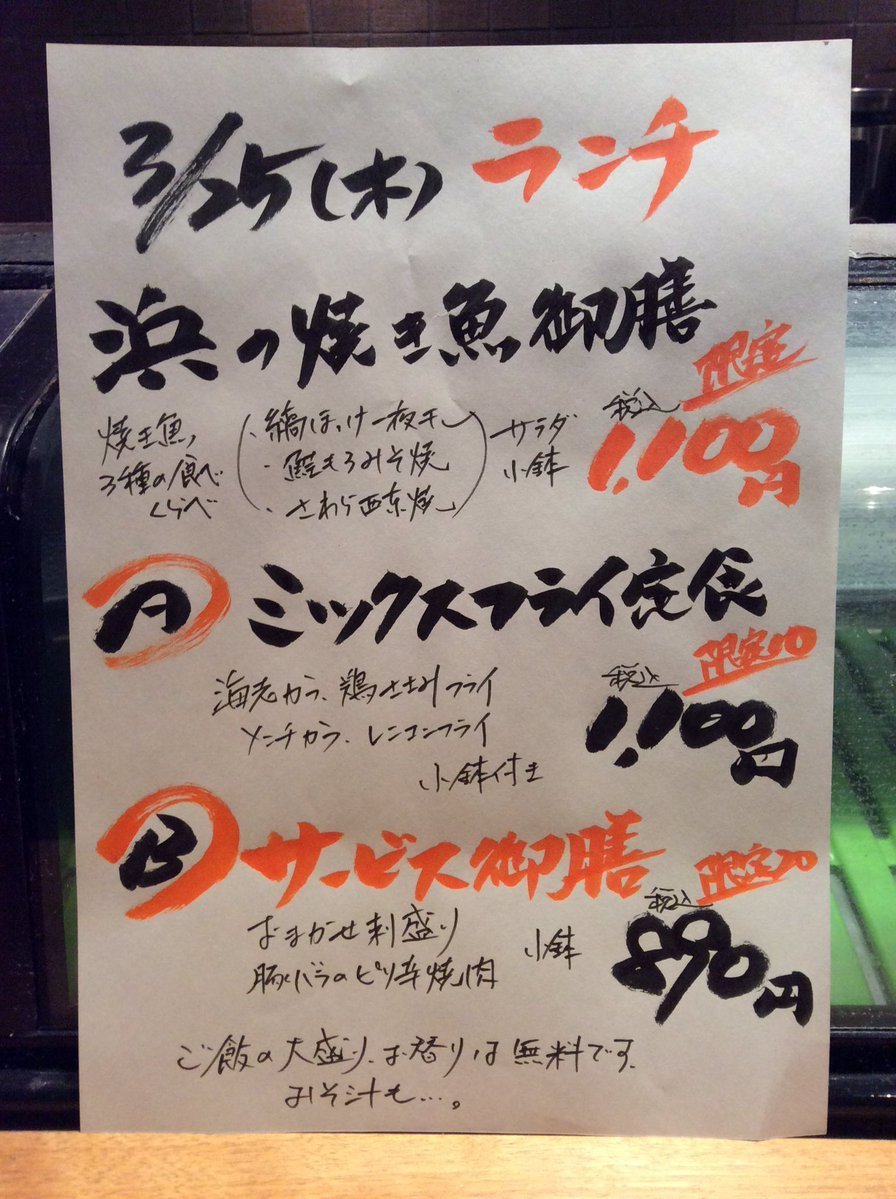 3/25(木) ランチ
浜の焼き魚御膳
限定
焼き魚
3種の食べ
くらべ
・縞ほっけ一夜干し
・鮭もろみそ焼
・さわら西京焼
サラダ
小鉢
税込
1,100円
A ミックスフライ定食
限定10
海老カラ、鶏ささみフライ
メンチカラ、レンコンフライ
小鉢付き
税込
1,100円
B サービス御膳
限定20
おまかせ刺盛り
豚バラのピリ辛焼肉
小鉢
税込
890円
ご飯の大盛り、お替りは無料です、
みそ汁も…。